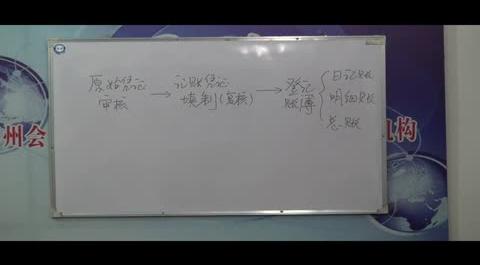 原始凭证 → 记账凭证 → 登记 { 日记账
审核 填制(复核) 账簿 明细账
总账
州会
机构